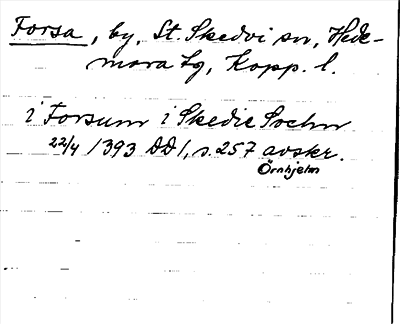 Forsa, by, St. Skedvi sn, Hede-
mora tg, Kopp. l.
i Forsum i Skedie Sochn
22/4 1393 DD1, s. 257 avskr.
Örnhjelm